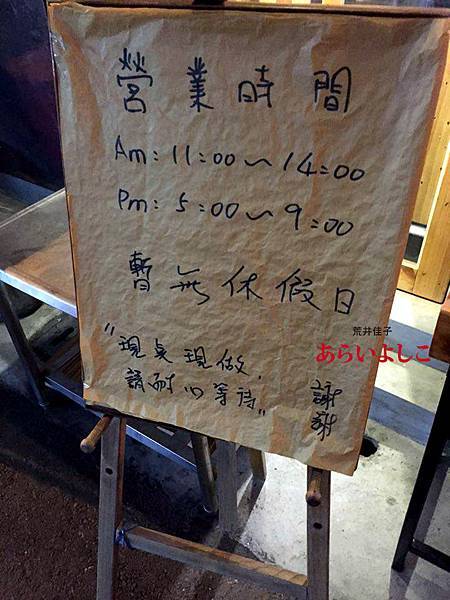 營業時間
Am: 11:00~14:00
Pm: 5:00~9:00
暫無休假日
荒井佳子
あらいよしこ
"現桌現做,
請耐心等待"
謝謝